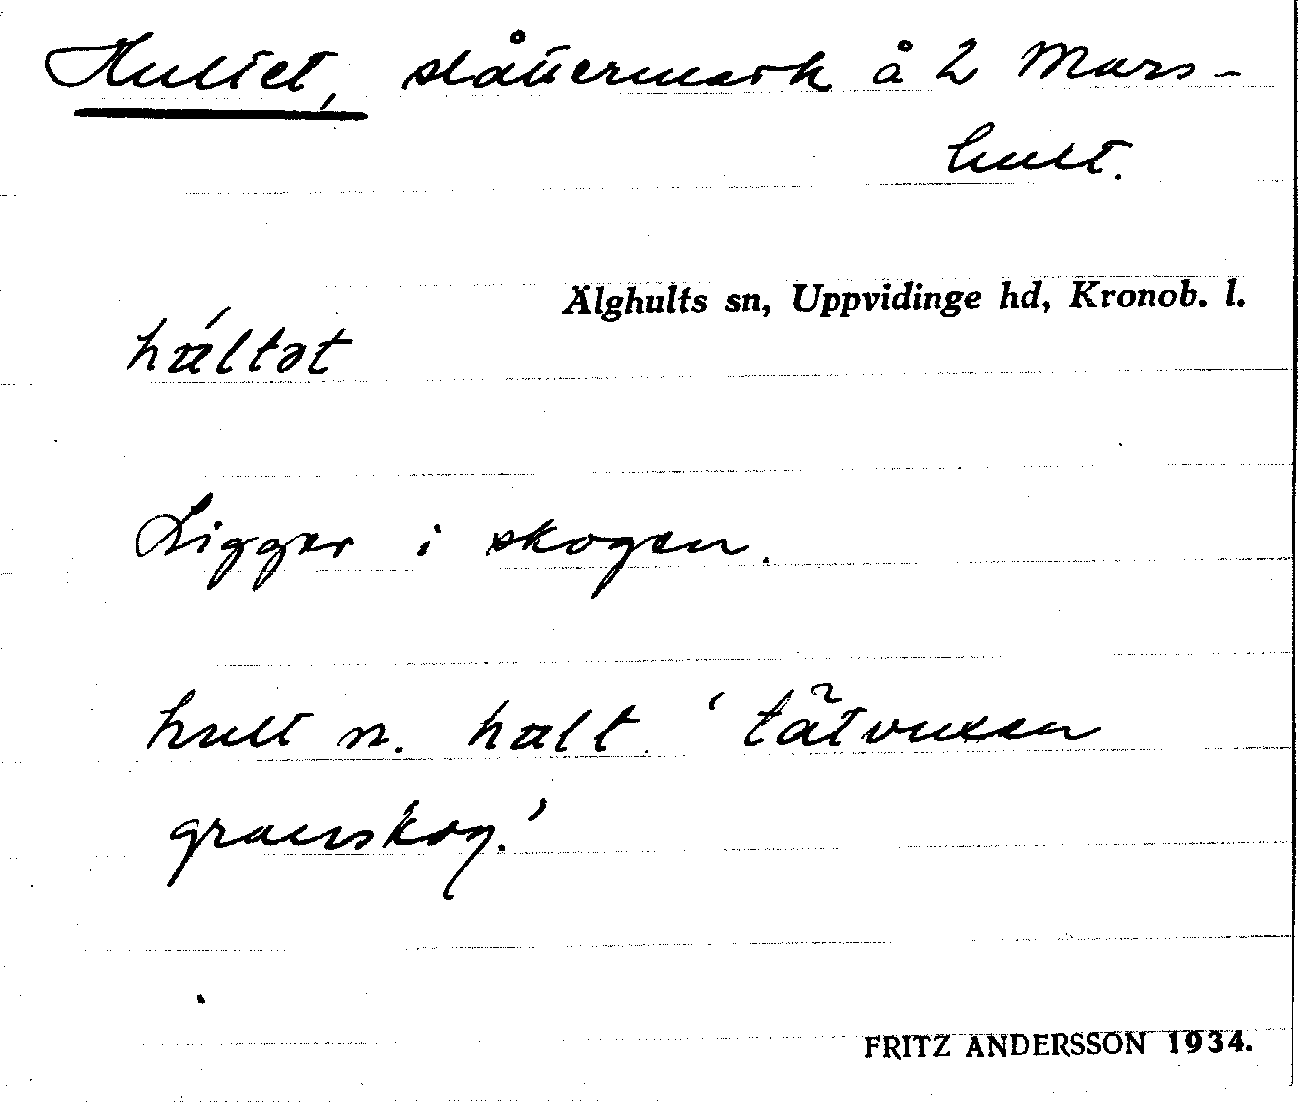 Hultet, slåttermark å 2 Mars-
hult.
Älghults sn, Uppvidinge hd, Kronob. l.
hú̵ltət
Ligger i skogen.
hult n. hult. 'tätvuxen
granskog.'
FRITZ ANDERSSON 1934.